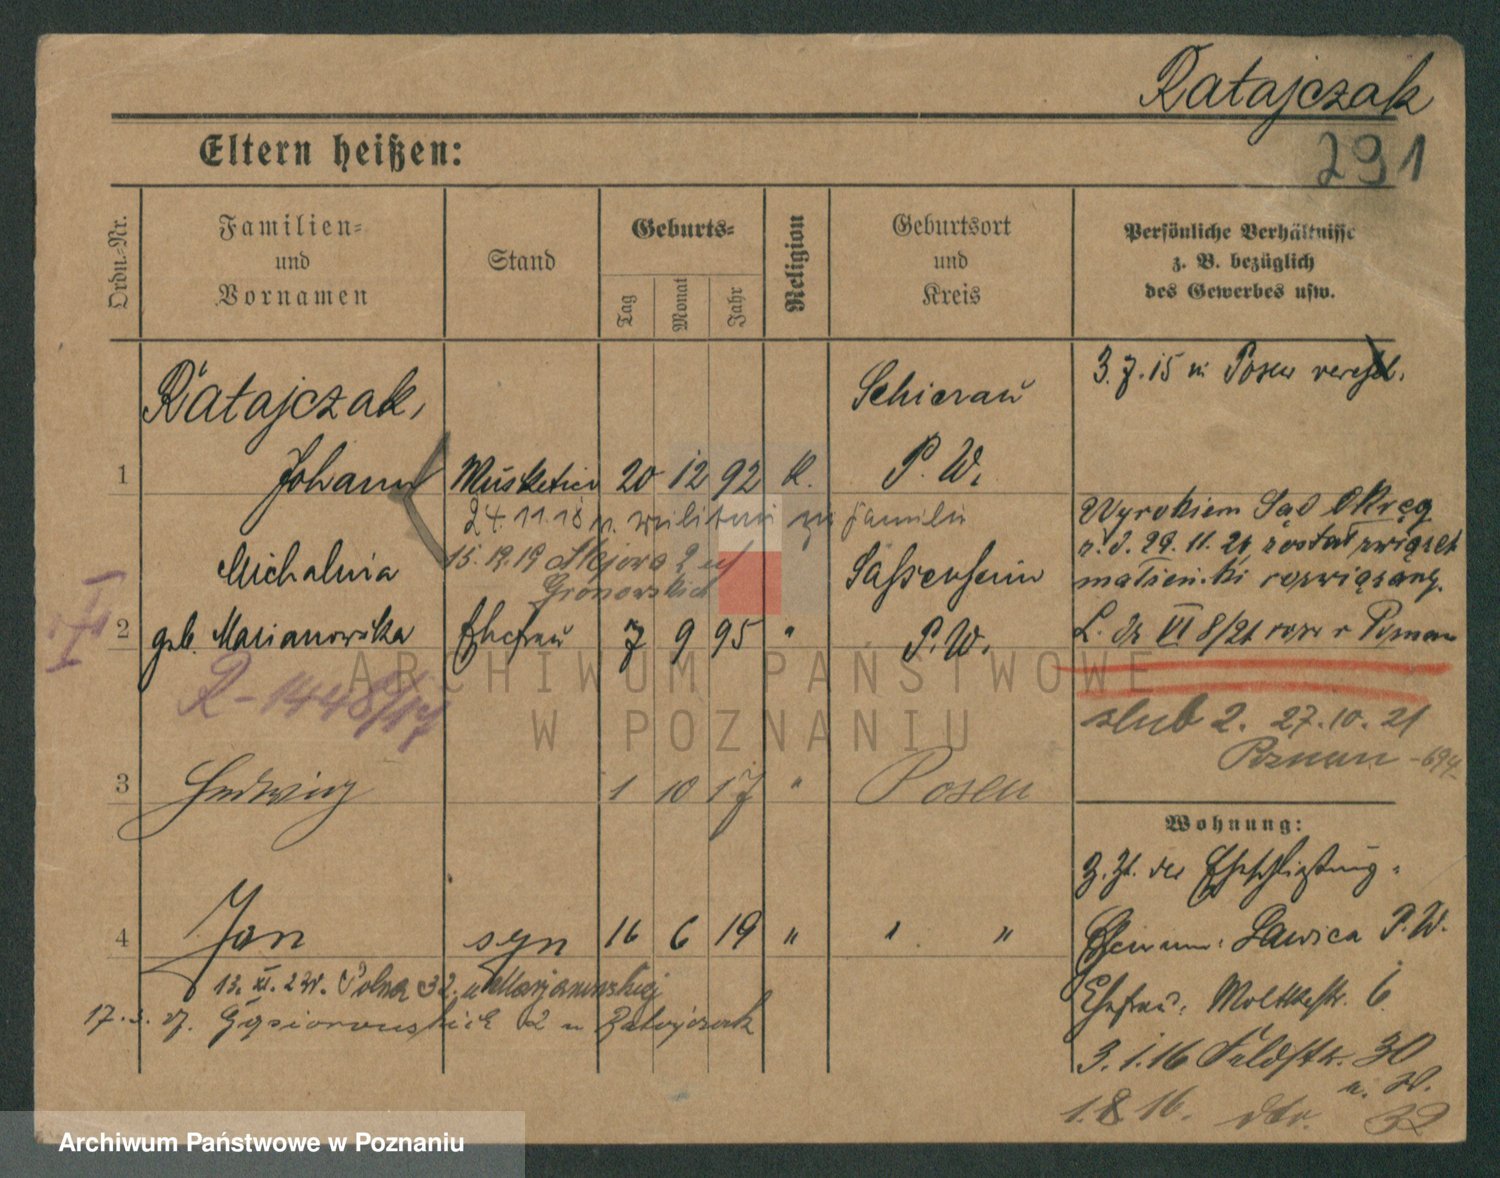 Ratajczak
291
Eltern heißen:
Ordn.-Nr.
Familien-
und
Vornamen
Stand
Geburts-
Tag
Monat
Jahr
Religion
Geburtsort
und
Kreis
Persönliche Verhältnisse
z. B. bezüglich
des Gewerbes usw.
Ratajczak,
Schierau
3.7.15 in Posen verehel.
1 Johann Musketier 20 12 92 K. P. W.
24.11.18 militari familii
Wyrokiem Sąd Okręg
15.12.19
z d. 29.11.21 został związek
Michalina Sassenheim
małżeński rozwiązany.
Gronowskich
2 geb. Marianowska Ehefrau 7 9 95 " P. W.
L. dz VI 8/21 Poznań
R-1448/17
slub 2. 27.10.21
Poznan
3 Hedwig 1 10 17 " Posen
Wohnung:
z. Zt. der Eheschließung:
4 Jan syn 16 6 19 " " "
Ehemann: Lawica P. W.
13. XI. 23 Polna 32 u Marjanowskiej
Ehefrau: Moltkestr. 6
Gąsiorowskich 2 u Ratajczak
3.1.16 Feldstr. 30
1.8.16. dto. 32
ARCHIWUM PAŃSTWOWE
W POZNANIU
Archiwum Państwowe w Poznaniu